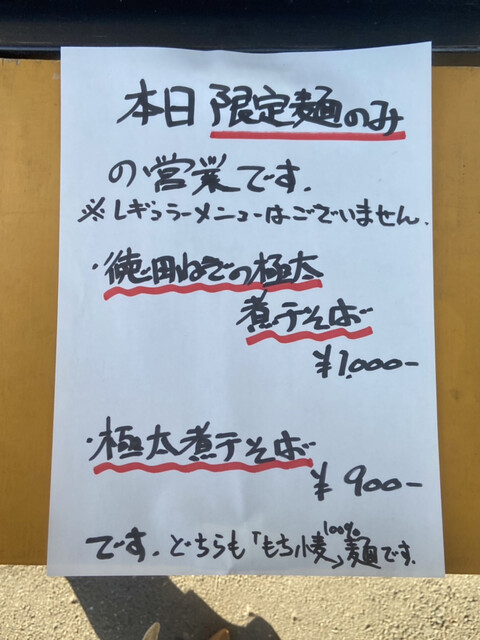 本日 限定麺のみ
の営業です.
※レギュラーメニューはございません.
・徳田ねぎの極太
煮干そば
¥1,000-
・極太煮干そば
¥900-
です. どちらも「もち小麦」100%麺です.